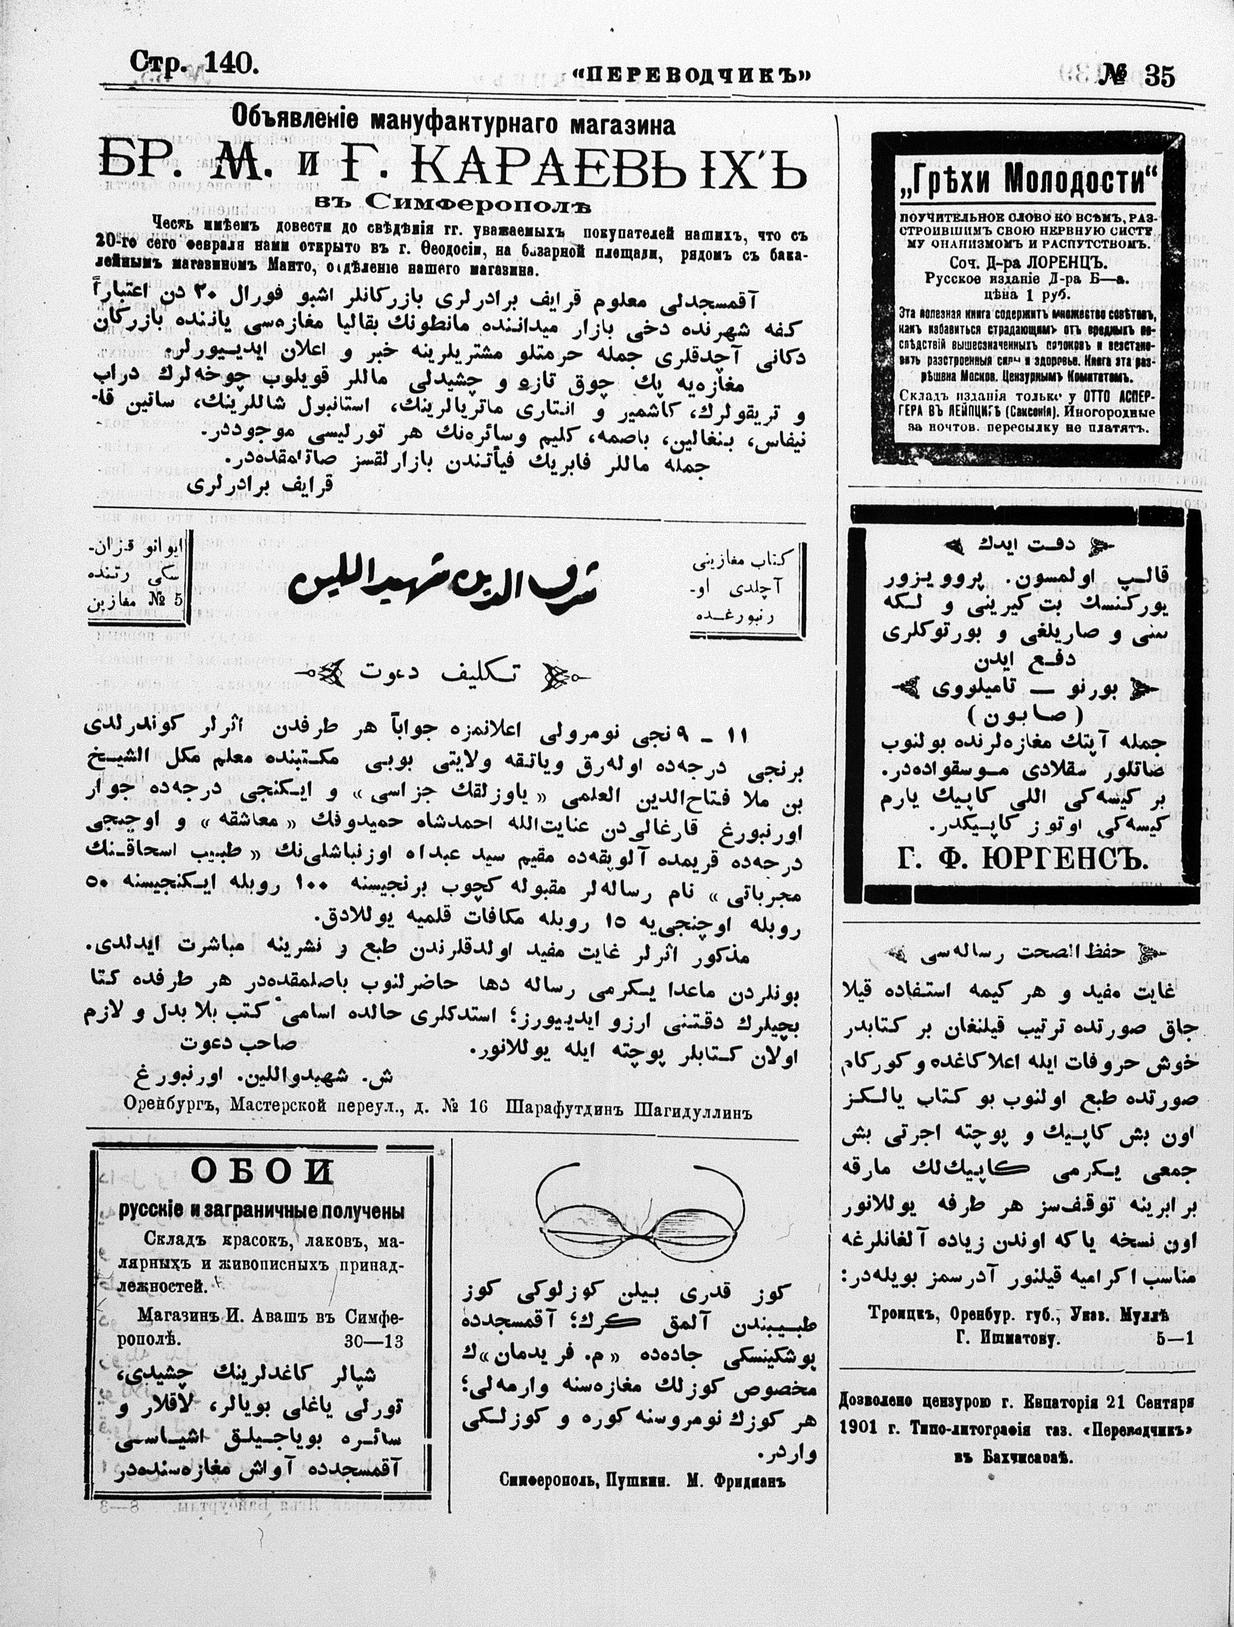 Стр. 140.
«ПЕРЕВОДЧИКЪ»
№ 35
Объявленіе мануфактурнаго магазина
БР. М. и Г. КАРАЕВЫХЪ
въ Симферополѣ
Честь имѣемъ довести до свѣдѣнія гг. уважаемыхъ покупателей нашихъ, что съ
20-го сего февраля нами открыто въ г. Ѳеодосіи, на базарной площади, рядомъ съ бака-
лейнымъ магазиномъ Манто, отдѣленіе нашего магазина.
آقمسجدلی معلوم قرایف برادرلری بازرکانلر اشبو فورال ٢٠ دن اعتباراً
کفه شهرنده دخی بازار میداننده مانطونك بقالیا مغازه‌سی یاننده بازرکان
دکانی آچدقلری جمله حرمتلو مشتریلرینه خبر و اعلان ایدییورلر.
مغازه‌یه پك چوق تازه و چشیدلی ماللر قویلوب چوخه‌لرك دراپ
و تریقولرك، کاشمیر و انتاری ماتریالرینك، استانبول شاللرینك، ساتین قا-
نیفاس، بنغالین، باصمه، کلیم وسائره‌نك هر تورلیسی موجوددر.
جمله ماللر فابریك فیأتندن بازارلقسز صاتلمقده‌در.
قرایف برادرلری
ایوانو قزان-
سکی رتنده
№ 5 مغازین
شرف الدین شهیداللین
کتاب مغازینی
آچلدی او-
رنبورغده
تکلیف دعوت
١١ ـ ٩ نجی نومرولی اعلانمزه جواباً هر طرفدن اثرلر کوندرلدی
برنجی درجه‌ده اوله‌رق ویاتقه ولایتی بوبی مکتبنده معلم مکل الشیخ
بن ملا فتاح‌الدین العلمی «یاوزلقك جزاسی» و ایکنجی درجه‌ده جوار
اورنبورغ قارغالی‌دن عنایت‌الله احمدشاه حمیدوفك «معاشقه» و اوچنجی
درجه‌ده قریمده آلوپقه‌ده مقیم سید عبدالله اوزنباشلی‌نك «طبیب اسحاقنك
مجرباتی» نام رساله‌لر مقبوله کچوب برنجیسنه ١٠٠ روبله ایکنجیسنه ٥٠
روبله اوچنجی‌یه ١٥ روبله مکافات قلمیه یوللادق.
مذکور اثرلر غایت مفید اولدقلرندن طبع و نشرینه مباشرت ایدلدی.
بونلردن ماعدا یکرمی رساله دها حاضرلنوب باصلمقده‌در هر طرفده کتا
بچیلرك دقتنی ارزو ایدییورز؛ استدکلری حالده اسامی کتب بلا بدل و لازم
اولان کتابلر پوچته ایله یوللانور.
صاحب دعوت
ش. شهیدواللین. اورنبورغ
Оренбургъ, Мастерской переул., д. № 16 Шарафутдинъ Шагидуллинъ
ОБОИ
русскіе и заграничные получены
Складъ красокъ, лаковъ, ма-
лярныхъ и живописныхъ принад-
лежностей.
Магазинъ И. Авашъ въ Симфе-
рополѣ. 30—13
شپالر کاغدلرینك چشیدی،
تورلی یاغلی بویالر، لاقلار و
سائره بویاجیلق اشیاسی
آقمسجدده آواش مغازه‌سنده‌در
کوز قدری بیلن کوزلوکی کوز
طبیبندن آلمق کرك؛ آقمسجدده
پوشکینسکی جاده‌ده «م. فریدمان»ك
مخصوص کوزلك مغازه‌سنه وارمه‌لی؛
هر کوزك نومروسنه کوره و کوزلکی
واردر.
Симферополь, Пушкин. М. Фридманъ
„Грѣхи Молодости“
ПОУЧИТЕЛЬНОЕ СЛОВО КО ВСѢМЪ, РАЗ-
СТРОИВШИМЪ СВОЮ НЕРВНУЮ СИСТЕ
МУ ОНАНИЗМОМЪ И РАСПУТСТВОМЪ.
Соч. Д-ра ЛОРЕНЦЪ.
Русское изданіе Д-ра Б—а.
цѣна 1 руб.
Эта полезная книга содержитъ множество совѣтовъ,
какъ избавиться страдающимъ отъ вредныхъ по-
слѣдствій вышесозначенныхъ пороковъ и возстано-
вить разстроенныя силы и здоровье. Книга эта раз-
рѣшена Москов. Цензурнымъ Комитетомъ.
Складъ изданія только у ОТТО АСПЕР-
ГЕРА ВЪ ЛЕЙПЦИГѢ (Саксонія). Иногородные
за почтов. пересылку не платятъ.
دقت ایدك
قالپ اولمسون. پروویزور
یورکنسك بت کیرینی و لکه
سنی و صاریلغی و بورتوکلری
دفع ایدن
بورنو — تامیلووی
(صابون)
جمله آپتك مغازه‌لرنده بولنوب
صاتلور سقلادی موسقواده‌در.
بر کیسه‌کی اللی کاپیك یارم
کیسه‌کی اوتوز کاپیکدر.
Г. Ф. ЮРГЕНСЪ.
حفظ الصحت رساله‌سی
غایت مفید و هر کیمه استفاده قیلا
جاق صورتده ترتیب قیلنغان بر کتابدر
خوش حروفات ایله اعلا کاغده و کورکام
صورتده طبع اولنوب بو کتاب یالکز
اون بش کاپیك و پوچته اجرتی بش
جمعی یکرمی کاپیك‌لك مارقه
برابرینه توقف‌سز هر طرفه یوللانور
اون نسخه یاکه اوندن زیاده آلغانلرغه
مناسب اکرامیه قیلنور آدرسمز بویله‌در:
Троицкъ, Оренбур. губ., Указ. Муллѣ
Г. Ишматову. 5—1
Дозволено цензурою г. Евпаторія 21 Сентяря
1901 г. Типо-литографія газ. «Переводчикъ»
въ Бахчисараѣ.